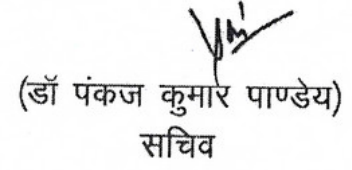 (डॉ पंकज कुमार पाण्डेय)
सचिव